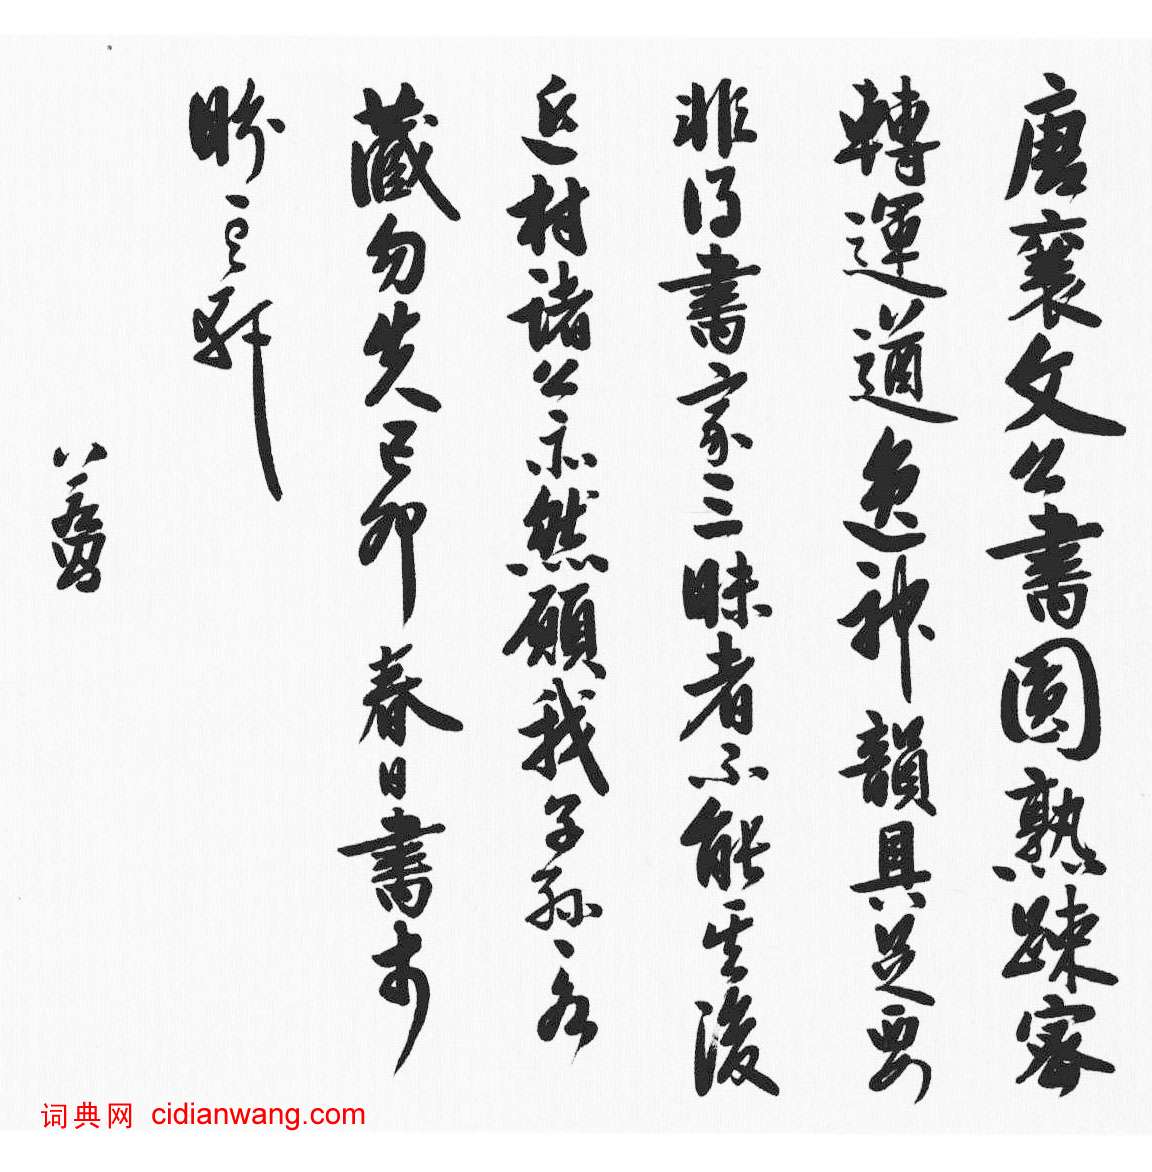 唐襄文公書圓熟疎密
轉運遒逸神韻具足要
非得書家三昧者不能其後
近村諸公亦然願我子孫各
藏勿失己卯春日書于
盼之軒
词典网 cidianwang.com